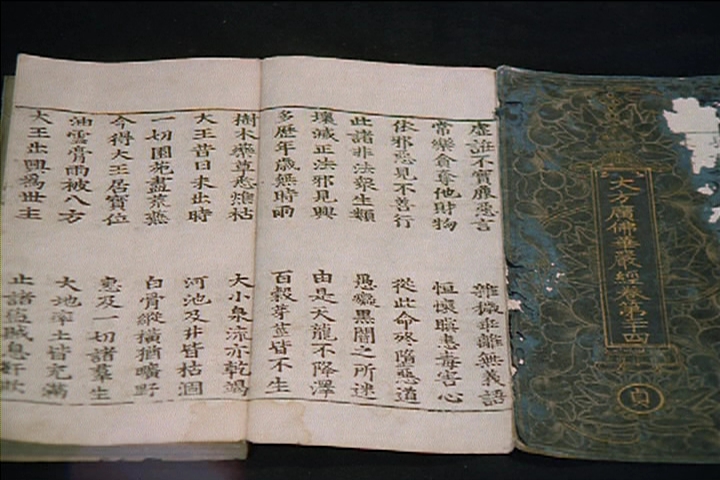 大方廣佛華嚴經卷第二十四
貞
虛誑不實麤惡言　雜穢乖離無義語
常樂貪奪他財物　恒懷瞋恚毒害心
依邪惡見不善行　從此命終墮惡道
此諸非法眾生類　愚癡黑闇之所迷
壞滅正法邪見興　由是天龍不降澤
多歷年歲無時雨　百穀芽莖皆不生
樹木藥草悉燋枯　大小泉流亦乾竭
大王昔日未出時　河池及井皆枯涸
一切園苑盡荒蕪　白骨縱橫猶曠野
今得大王居寶位　惠及一切諸羣生
油雲膏雨被八方　大地率土皆充滿
大王出興爲世主　止諸盜賊息奸欺